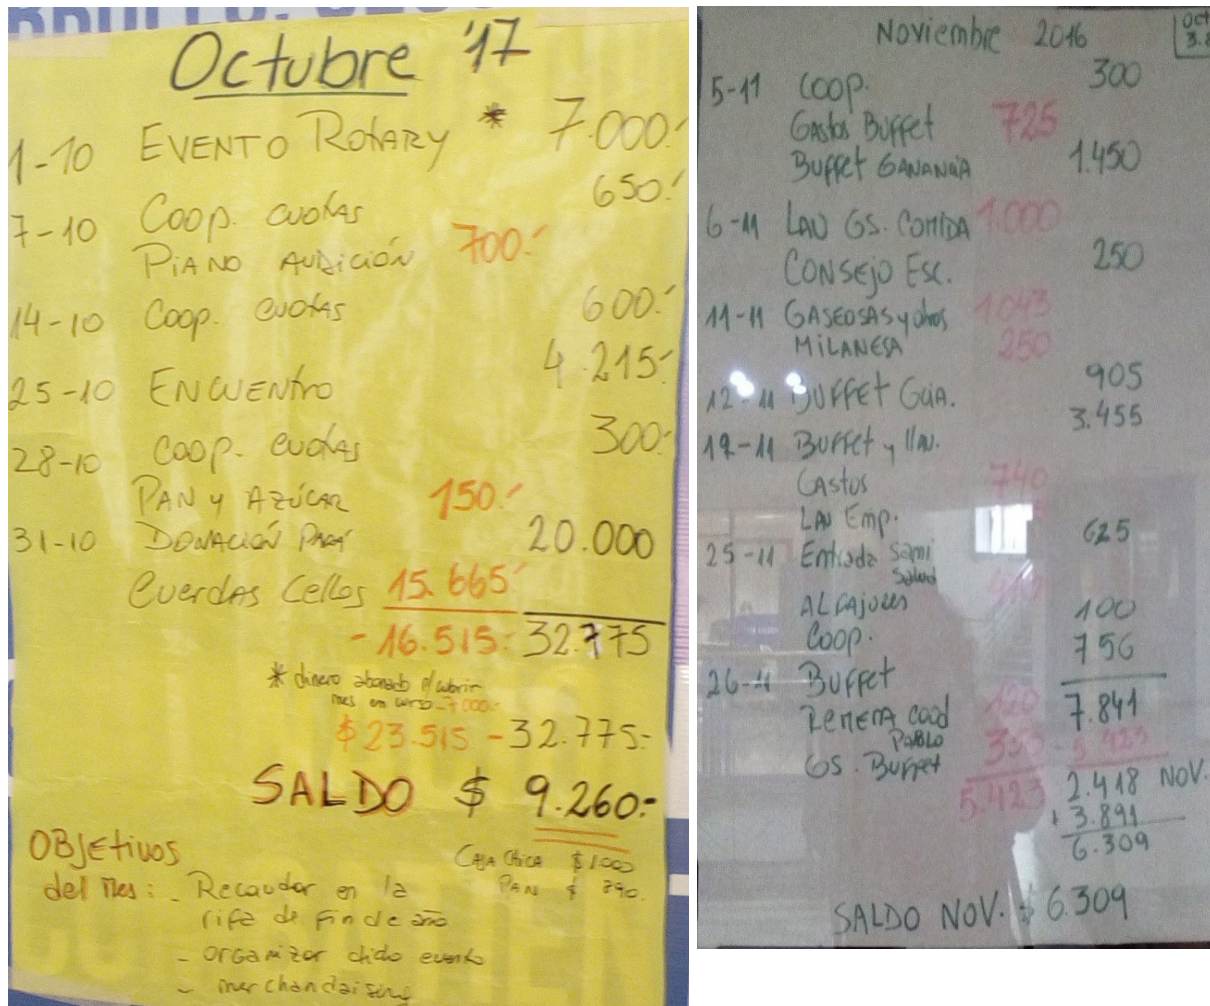 Octubre '17
1-10 EVENTO ROTARY * 7.000.-
7-10 Coop. cuotas 650.-
PIANO AUDICIÓN 700.-
14-10 Coop. cuotas 600.-
25-10 ENCUENtro 4.215.-
28-10 Coop. cuotas 300.-
PAN y AZÚCAR 150.-
31-10 DONACIÓN PARA 20.000
Cuerdas Cellos 15.665.-
- 16.515.- 32.775
* dinero abonado p/cubrir
mes en curso - 7.000.-
$ 23.515 - 32.775.-
SALDO $ 9.260.-
OBJEtivos
del mes: - Recaudar en la
rifa de fin de año
- organizar dicho evento
- merchandaising
CAJA CHICA $ 1.000
PAN $ 790.
Noviembre 2016
Oct
5-11 Coop. 300
GAstos Buffet 725
Buffet GANANCIA 1.450
6-11 LAU GS. COMIDA 1.000
CONSEJO Esc. 250
11-11 GASEOSAS y otros 1043
MILANESA 250
12-11 BUFFET GCIA. 905
19-11 Buffet y 3.455
GAstos 740
LAU Emp.
25-11 Entrada Sami 625
Salud
ALFAJORES
Coop. 100
26-11 Buffet 756
REMERA COOD 120 7.841
PABLO
GS. Buffet 350 5.423
5.423 2.418 NOV.
+ 3.891
6.309
SALDO NOV. $ 6.309